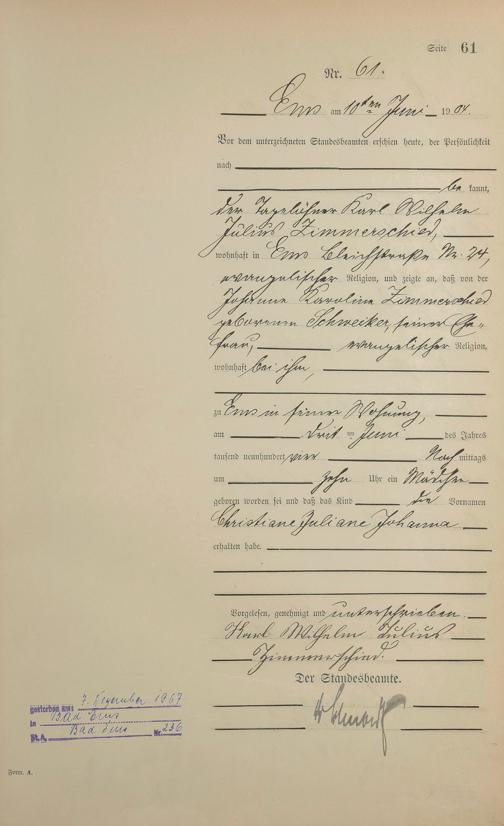 Seite 61
Nr. 61.
Ems am 10ten Juni 1904.
Vor dem unterzeichneten Standesbeamten erschien heute, der Persönlichkeit
nach
be kannt,
der Tagelöhner Karl Wilhelm
Julius Zimmerschied,
wohnhaft in Ems Bleichstraße Nr. 24,
evangelischer Religion, und zeigte an, daß von der
Johanne Karoline Zimmerschied
geborenen Schweiker, seiner Ehe-
frau, evangelischer Religion,
wohnhaft bei ihm,
zu Ems in seiner Wohnung,
am ten Juni des Jahres
tausend neunhundert vier Nach mittags
um zehn Uhr ein Mädchen
geboren worden sei und daß das Kind die Vornamen
Christiane Juliane Johanna
erhalten habe.
Vorgelesen, genehmigt und unterschrieben
Karl Wilhelm Julius
Zimmerschied.
Der Standesbeamte.
gestorben am 7. Dezember 1967
in Bad Ems
St.A. Bad Ems Nr. 236
Form. A.